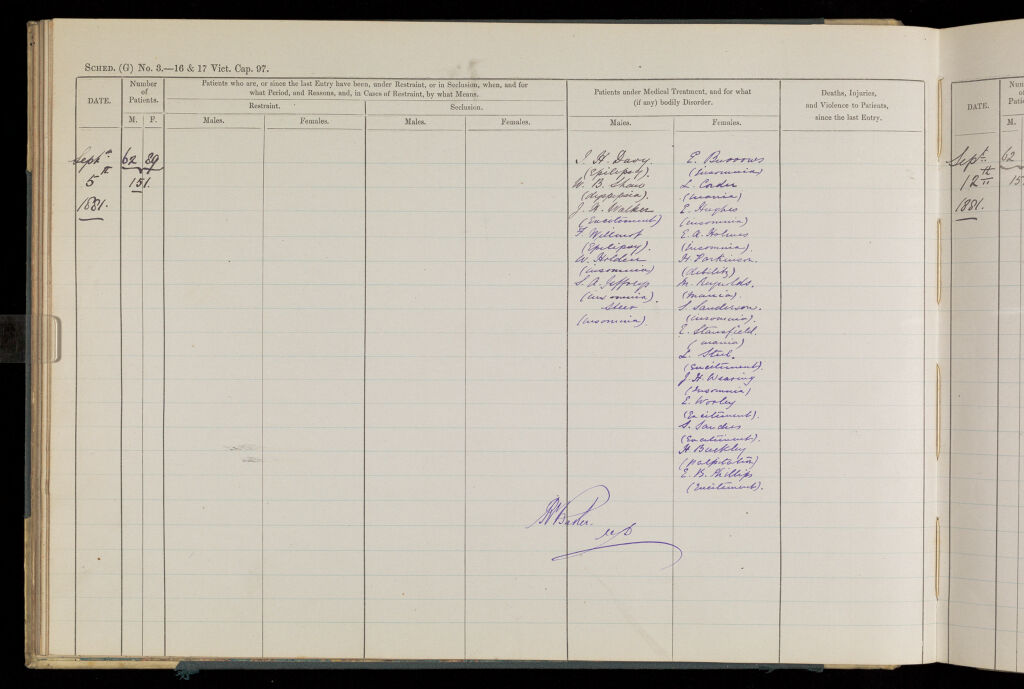 SCHED. (G) No. 3.—16 & 17 Vict. Cap. 97.
DATE.
Number of Patients.
M. F.
Patients who are, or since the last Entry have been, under Restraint, or in Seclusion, when, and for
what Period, and Reasons, and, in Cases of Restraint, by what Means.
Restraint.
Seclusion.
Males. Females. Males. Females.
Patients under Medical Treatment, and for what
(if any) bodily Disorder.
Males. Females.
Deaths, Injuries,
and Violence to Patients,
since the last Entry.
Sept.
5th
1881.
62 89
151.
J. H. Davy.
(Epilepsy).
W. B. Shaw
(dyspepsia).
J. W. Walker
(Excitement)
F. Willmot
(Epilepsy).
W. Holden
(insomnia)
S. A. Jeffreys
(insomnia).
Steer
(insomnia).
E. Burrows
(Insomnia)
L. Corder
(mania)
E. Hughes
(insomnia)
E. A. Holmes
(Insomnia).
H Parkinson.
(debility)
M. Reynolds.
(mania).
S. Sanderson.
(insomnia).
E. Stansfield.
(mania)
L. Steel.
(Excitement).
J. H. Wearing
(Insomnia)
E. Worley
(Excitement).
S. Sandes
(Excitement).
H Buckley
(palpitation)
E. B. Phillips
(Excitement).
Baker.
M.D
DATE.
M.
Sept.
12th
1881.
62